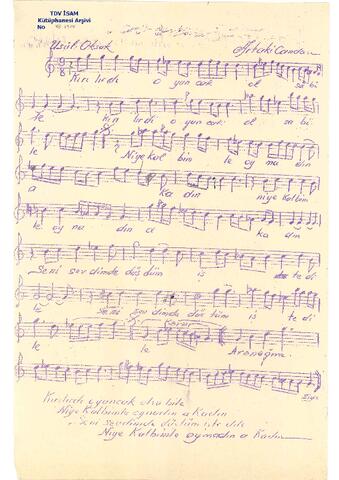 TDV İSAM
Kütüphanesi Arşivi
No
Usûl Aksak
Artaki Candan
Kırıldı oyuncak ol sa bi
le Kırıldı oyuncak ol sa bi
le Niye kal bim le oy na dın
a ka dın niye kalbim
le oy na dın a ka dın
Seni sevdimde düştüm is te di
le Seni sevdimde düştüm is te di
le le Aranağme
Kırıldı oyuncak olsa bile
Niye Kalbimle oynadın a Kadın
Seni sevdimde düştüm
Niye Kalbimle oynadın a Kadın